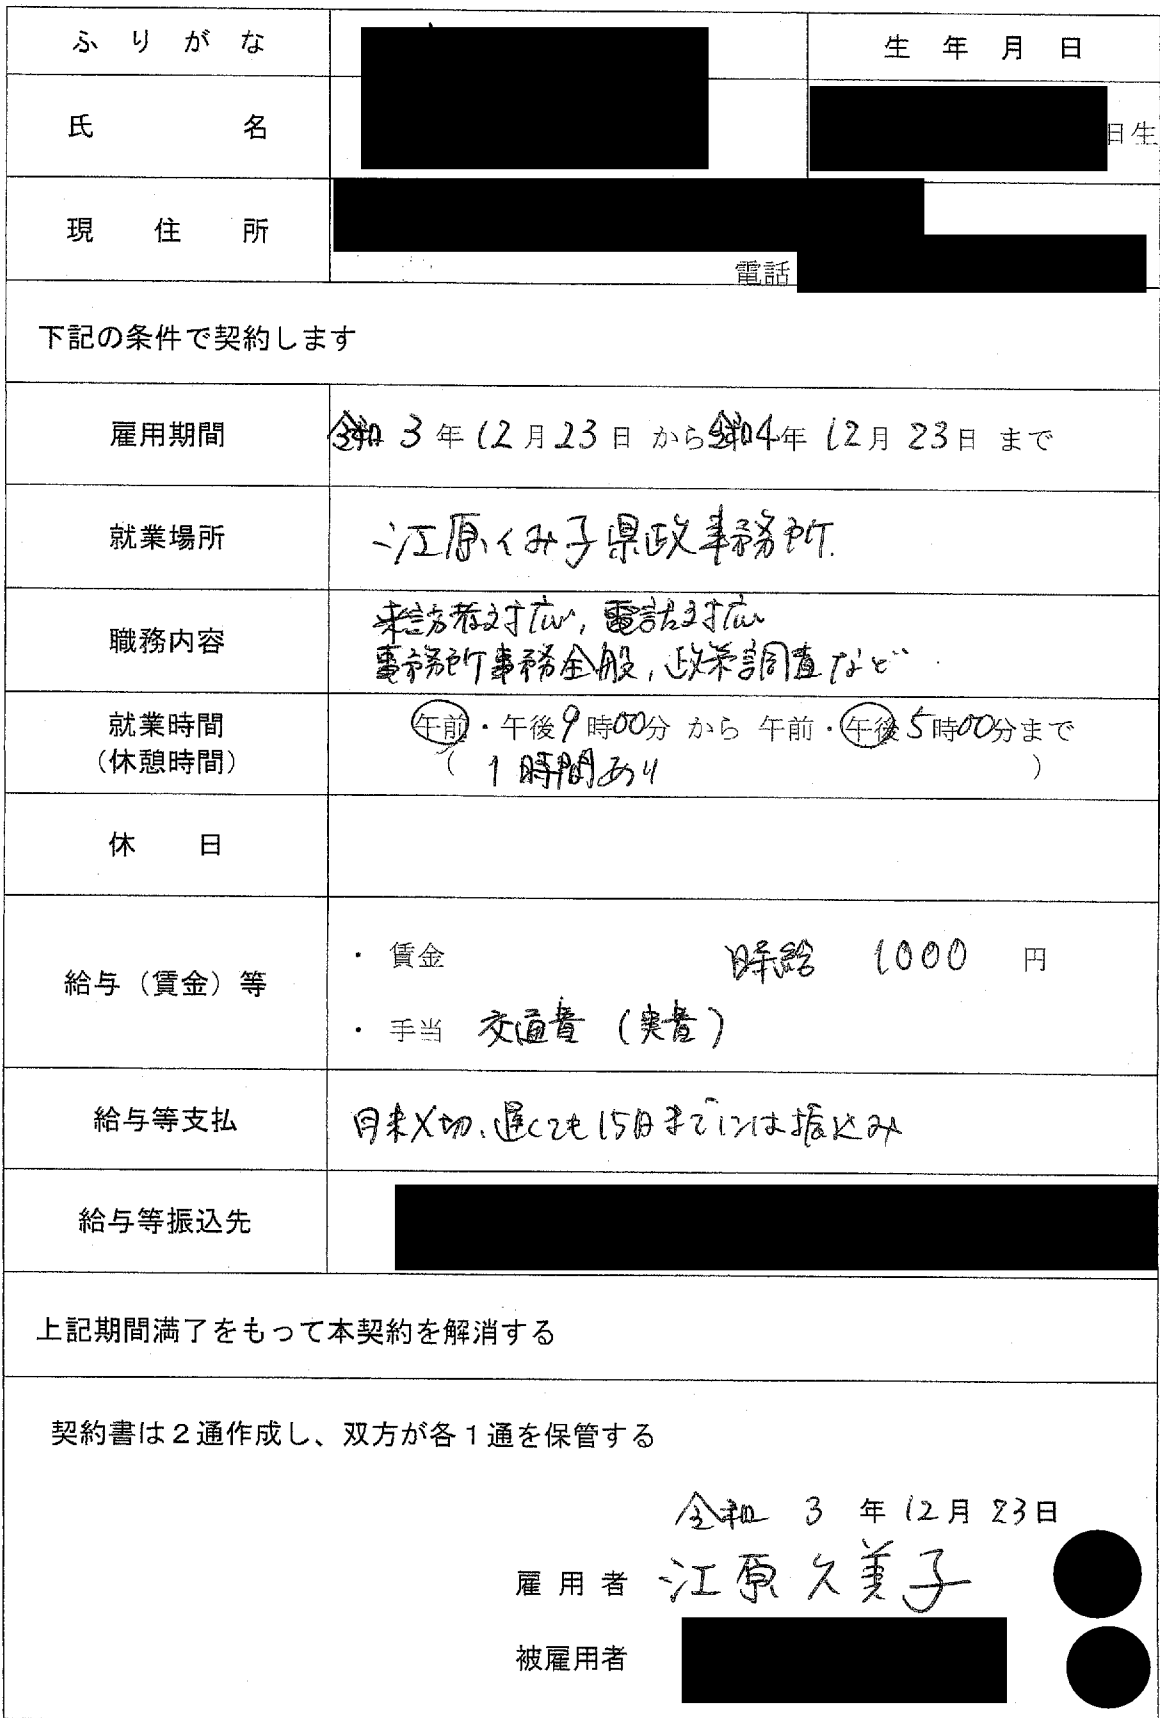 ふりがな
生年月日
氏名
日生
現住所
電話
下記の条件で契約します
雇用期間
令和3年12月23日から令和4年12月23日まで
就業場所
江原くみ子県政事務所
職務内容
来訪者対応,電話対応
事務所事務全般,政策調査など
就業時間
午前・午後9時00分から午前・午後5時00分まで
(休憩時間)
(1時間あり)
休日
給与(賃金)等
・賃金 時給 1000 円
・手当 交通費(実費)
給与等支払
月末〆切、遅くても15日までには振込み
給与等振込先
上記期間満了をもって本契約を解消する
契約書は2通作成し、双方が各1通を保管する
令和3年12月23日
雇用者 江原久美子
被雇用者